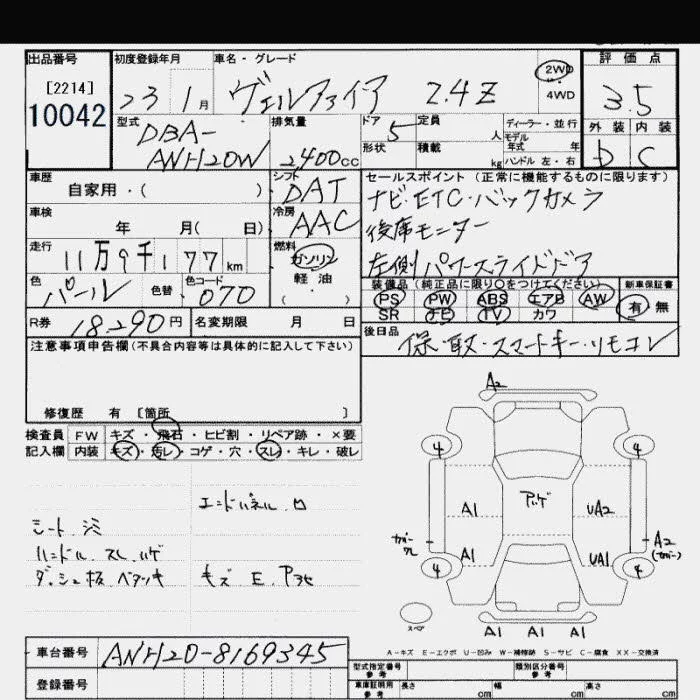 出品番号 初度登録年月 車名・グレード 評価点
[2214]
10042
23 1月 ヴェルファイア 2.4Z 2WD 4WD 3.5
型式 DBA-ANH20W 排気量 2400cc ドア 5 定員 人 ディーラー・並行 外装 内装
形状 積載 kg モデル年式 年 ハンドル 左・右 D C
車歴 自家用・( ) シフト DAT セールスポイント (正常に機能するものに限ります)
ナビ・ETC・バックカメラ
車検 年 月( 日) 冷房 AAC 後席モニター
走行 11万9千177km 燃料 ガソリン 軽油 ( ) 左側パワースライドドア
色 パール 色替 色コード 070 装備品(純正品に限り○をつけてください) 新車保証書
PS PW ABS エアB AW 有・無
SR ナビ TV カワ
R券 18,290円 名変期限 月 日 後日品 保・取・スマートキー・リモコン
注意事項申告欄(不具合内容等は具体的に記入して下さい)
修復歴 有 [箇所 ]
検査員 FW キズ・飛石・ヒビ割・リペア跡・×要
記入欄 内装 キズ・汚レ・コゲ・穴・スレ・キレ・破レ
エンドパネル
シート シミ
ハンドル スレ ハゲ
ダッシュ板 ベタツキ キズ E
A2
4 4
A1 UA2
A1 UA1 A2
4 4
スペア
A1 A1 A1
A-キズ E-エクボ U-凹み W-補修跡 S-サビ C-腐食 XX-交換済
車台番号 ANH20-8169345 型式指定番号 参考 類別区分番号 参考
登録番号 車庫証明用 参考 長さ cm 幅 cm 高さ cm